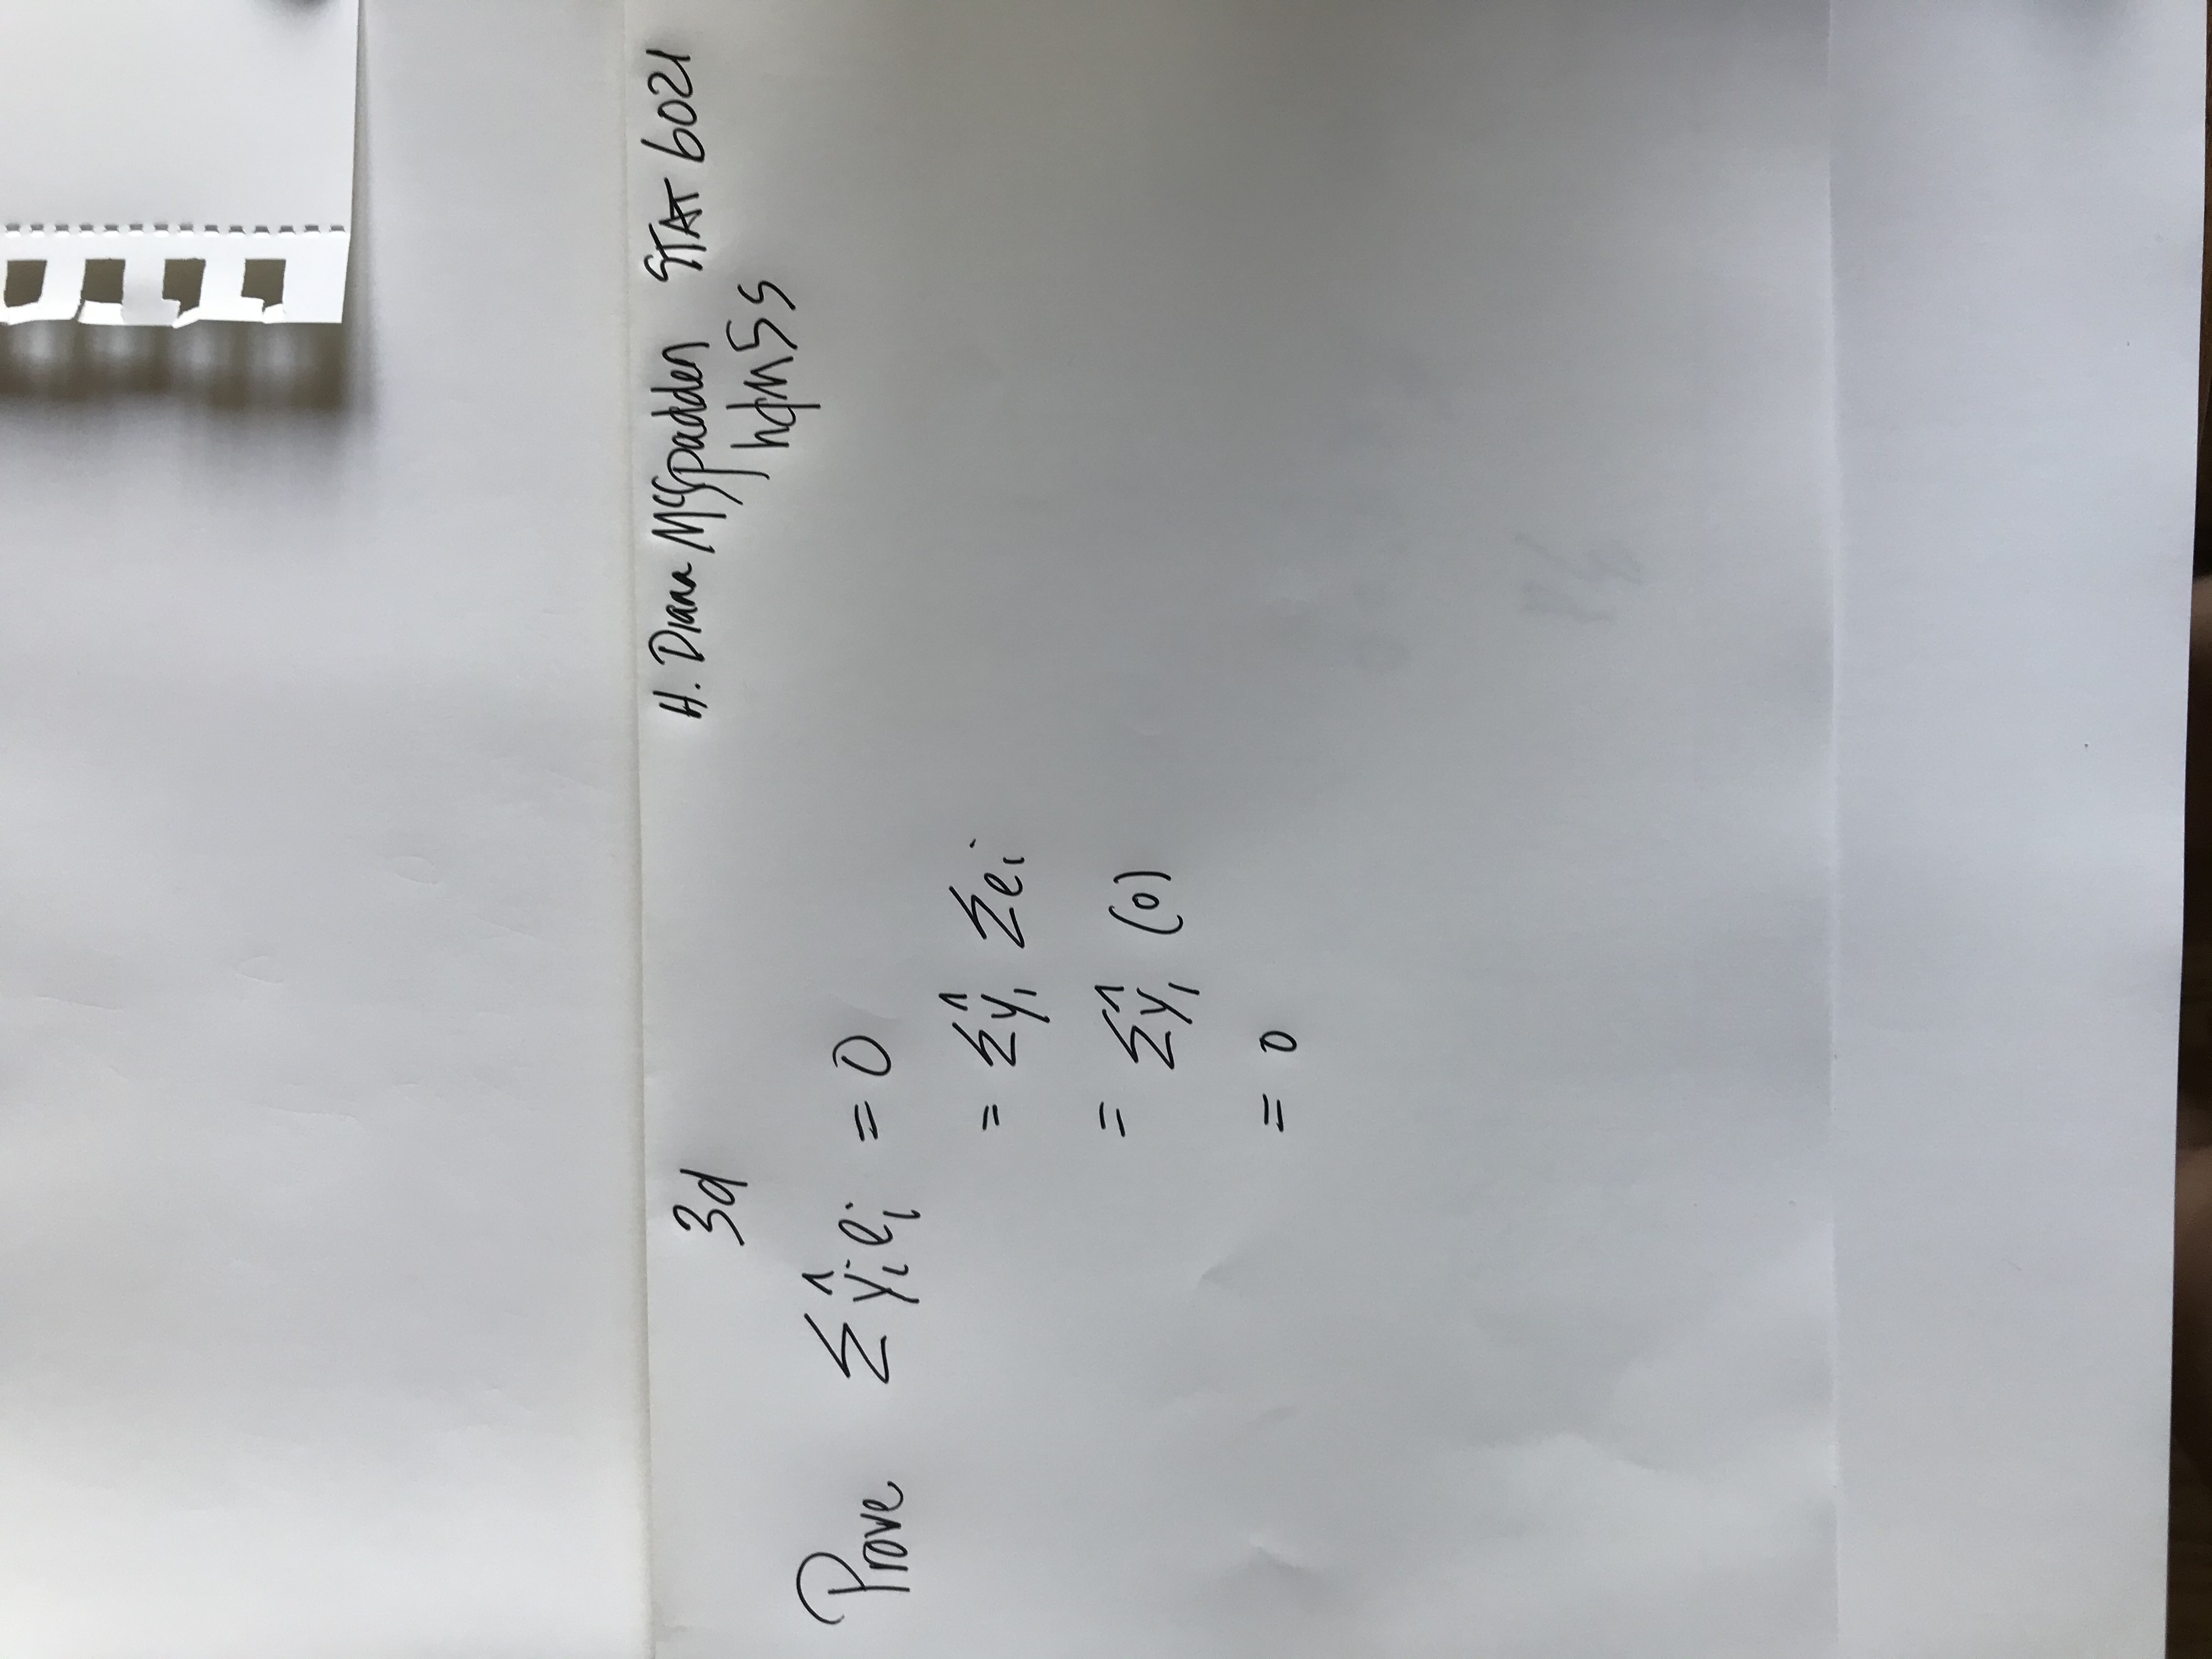 3d
H. Diana McSpadden STAT 6021
hdm5s
Prove Σŷᵢeᵢ = 0
= Σŷᵢ Σeᵢ
= Σŷᵢ (0)
= 0